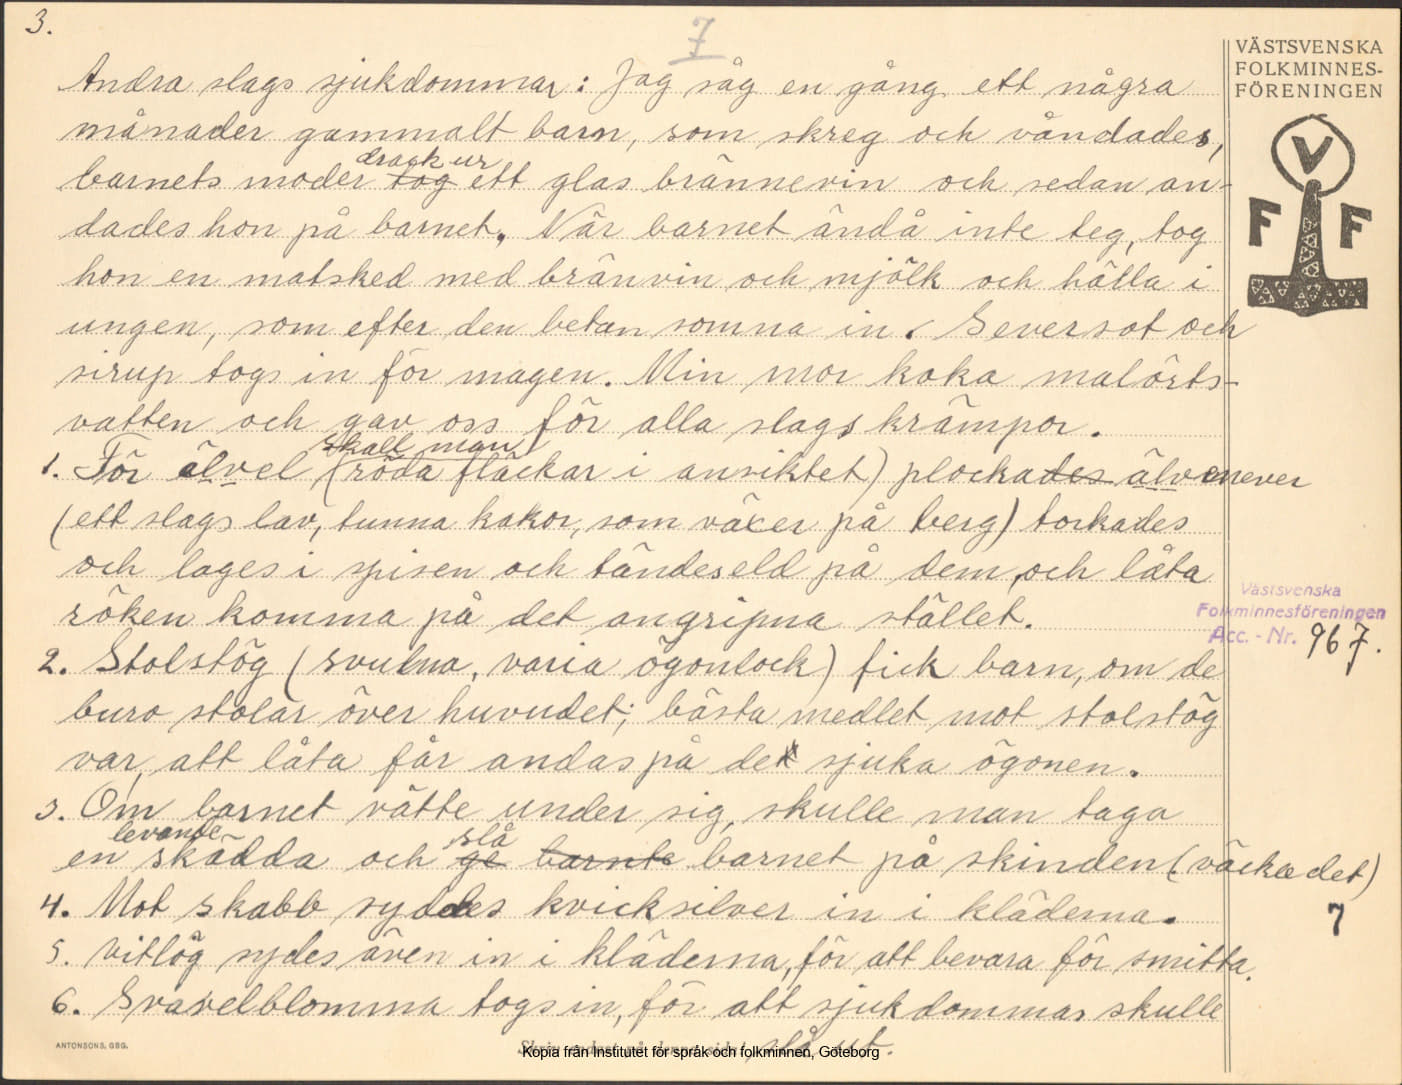 3.
7
VÄSTSVENSKA
FOLKMINNES-
FÖRENINGEN
V
F F
Andra slags sjukdommar: Jag såg en gång ett några
månader gammalt barn, som skreg och våndades,
drack ur
barnets moder tog ett glas brännevin och sedan an-
dades hon på barnet. När barnet ändå inte teg, tog
hon en matsked med bränvin och mjölk och hälla i
ungen, som efter den betan somna in. Seversot och
sirup togs in för magen. Min mor koka malörts-
vatten och gav oss för alla slags krämpor.
skall man
1. För älvel (röda fläckar i ansiktet) plockades älvenever
(ett slags lav, tunna kakor, som växer på berg) torkades
och lages i spisen och tändes eld på dem, och låta
röken komma på det angripna stället.
Västsvenska
Folkminnesföreningen
Acc. - Nr. 967.
2. Stolstög (svulna, varia ögonlock) fick barn, om de
buro stolar över huvudet; bästa medlet mot stolstög
var, att låta får andas på de sjuka ögonen.
3. Om barnet vätte under sig, skulle man taga
levande slå
en skädda och ge barnte barnet på skinden (väcka det)
4. Mot skabb syddes kvicksilver in i kläderna.
7
5. Vitlög sydes även in i kläderna, för att bevara för smitta.
6. Svavelblomma togs in, för att sjukdommar skulle
slå ut.
ANTONSONS, GBG.
Kopia från Institutet för språk och folkminnen, Göteborg